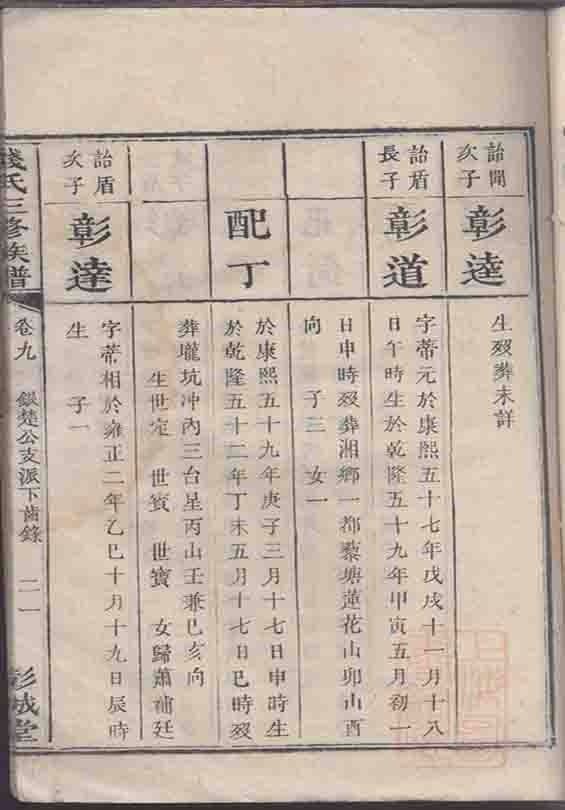 詒開
次子
彰達
生歿葬未詳
詒盾
長子
彰道
字蒂元於康熙五十七年戊戌十一月十八
日午時生於乾隆五十九年甲寅五月初一
日申時歿葬湘鄉一都藜塘蓮花山卯山酉
向 子三 女一
配丁
於康熙五十九年庚子三月十七日申時生
於乾隆五十二年丁未五月十七日巳時歿
葬壠坑冲內三台星丙山壬兼巳亥向
生世定 世賓 世寶 女歸蕭補廷
詒盾
次子
彰達
字蒂相於雍正二年乙巳十月十九日辰時
生 子一
錢氏三修族譜
卷九
銀楚公支派下齒錄
二一
彭城堂